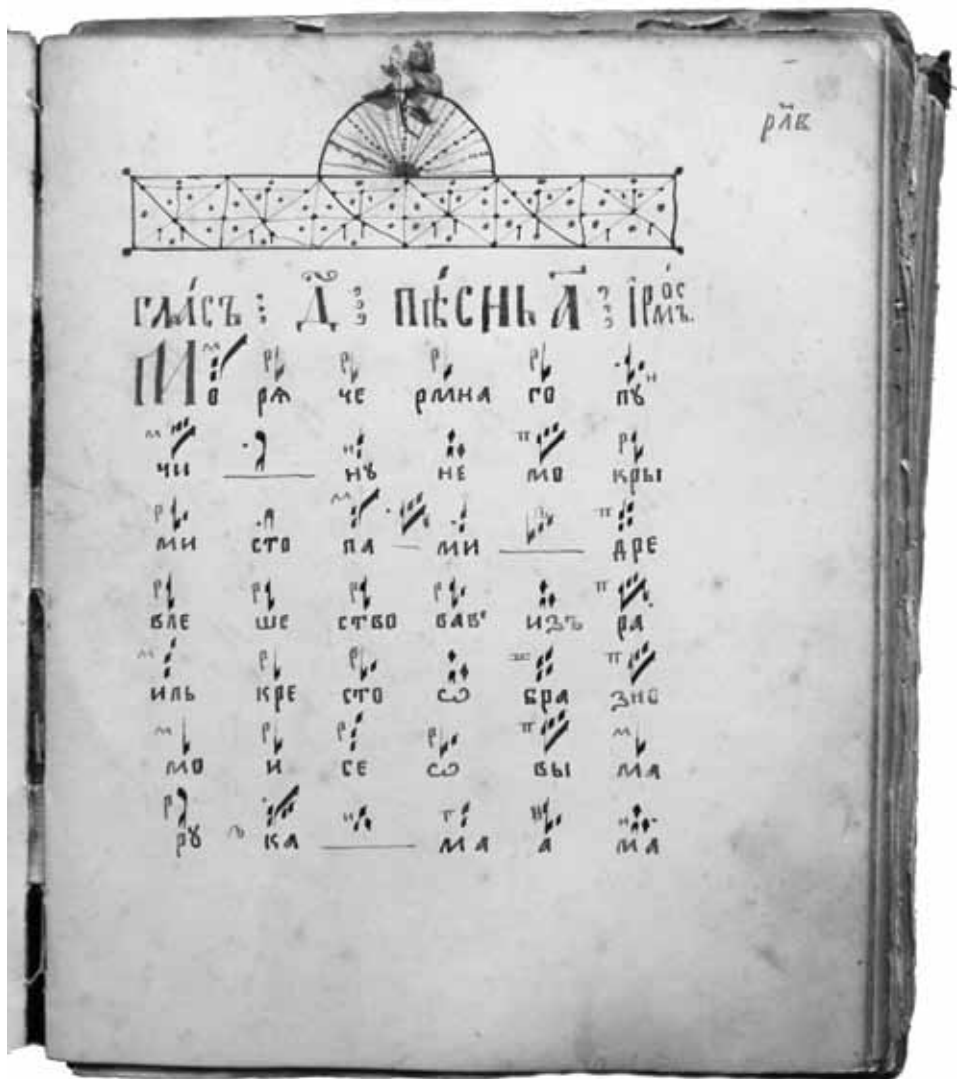 рл҃в
гла́съ : д҃ : пѣ́снь а҃ : їрмо́съ.
Мо ря че рмна го пꙋ
чи нꙋ не мо кры
ми сто па ми дре
вле ше ство вав' изъ ра
иль кре сто ѡ бра зно
мо и се ѡ вы ма
рꙋ ка ма а ма